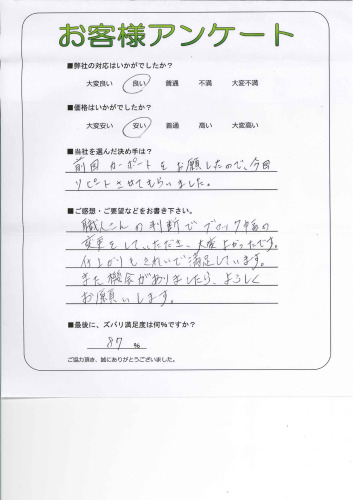 お客様アンケート
■弊社の対応はいかがでしたか？
大変良い 良い 普通 不満 大変不満
■価格はいかがでしたか？
大変安い 安い 普通 高い 大変高い
■当社を選んだ決め手は？
前回カーポートをお願したので、今回
リピートさせてもらいました。
■ご感想・ご要望などをお書き下さい。
職人さんの判断でブロック幅の
変更をしていただき、大変よかったです。
仕上がりもきれいで満足しています。
また機会がありましたら、よろしく
お願いします。
■最後に、ズバリ満足度は何％ですか？
87 %
ご協力頂き、誠にありがとうございました。